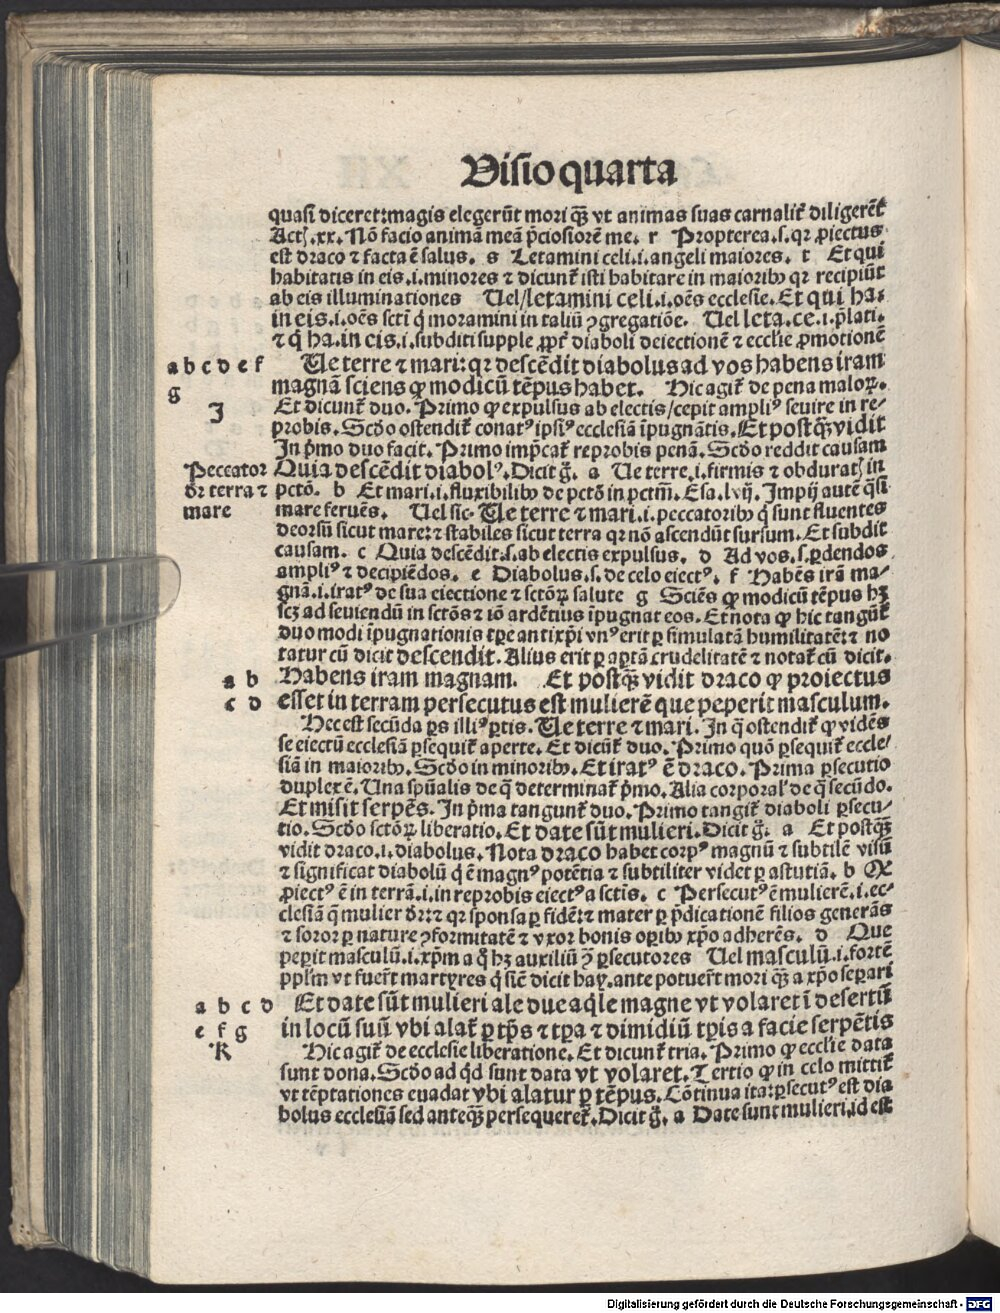 Visio quarta
quasi diceret: magis elegerūt mori q̄ꝫ vt animas suas carnalit̄ diligerēt
Actꝭ. xx. Nō facio animā meā p̄ciosiorē me. r Propterea. s. qr ꝓiectus
est draco ⁊ facta ē salus. s Letamini celi. i. angeli maiores. t Et qui
habitatis in eis. i. minores ⁊ dicunt̄ isti habitare in maioribꝰ qr recipiūt
ab eis illuminationes Uel/letamini celi. i. oēs ecclesie. Et qui ha-
in eis. i. oēs sctī q̄ moramini in taliū ꝯgregatiōe. Uel leta. ce. i. p̄lati.
⁊ q̄ ha. in eis. i. subditi supple ꝓpt̄ diaboli deiectionē ⁊ ecclīe ꝓmotionē
a b c d e f Ue terre ⁊ mari: qr descēdit diabolus ad vos habens iram
g magnā sciens ꝙ modicū tēpus habet. Hic agit̄ de pena maloꝝ.
J Et dicunt̄ duo. Primo ꝙ expulsus ab electis/cepit ampliꝰ seuire in re-
probis. Scďo ostendit̄ conatꝰ ipsiꝰ ecclesiā īpugnātis. Et postq̄ꝫ vidit
In p̄mo duo facit. Primo imp̄cat̄ reprobis penā. Scďo reddit causam
Peccator Quia descēdit diabolꝰ. Dicit g̊. a Ue terre. i. firmis ⁊ obduratꝭ in
ďr terra ⁊ pctō. b Et mari. i. fluxibilibꝰ de pctō in pctm̄. Esa. lvij. Impij autē q̄si
mare mare feruēs. Uel sic. Ue terre ⁊ mari. i. peccatoribꝰ q̄ sunt fluentes
deorsū sicut mare: ⁊ stabiles sicut terra qr nō ascendūt sursum. Et subdit
causam. c Quia descēdit. s. ab electis expulsus. d Ad vos. s. ꝑdendos
ampliꝰ ⁊ decipiēdos. e Diabolus. s. de celo eiectꝰ. f Habēs irā ma-
gnā. i. iratꝰ de sua eiectione ⁊ sctōꝝ salute g Sciēs ꝙ modicū tēpus hꝫ
scꝫ ad seuiendū in sctōs ⁊ iō ardētius īpugnat eos. Et nota ꝙ hic tangūt̄
duo modi īpugnationis tꝑe antixp̄i vnꝰ erit ꝑ simulatā humilitatē: ⁊ no
tatur cū dicit descendit. Alius erit ꝑ aꝑtā crudelitatē ⁊ notat̄ cū dicit.
a b Habens iram magnam. Et postq̄ꝫ vidit draco ꝙ proiectus
c d esset in terram persecutus est mulierē que peperit masculum.
Hec est secūda ps̄ illiꝰ ꝑtis. Ue terre ⁊ mari. In q̄ ostendit̄ ꝙ vidēs
se eiectū ecclesiā ꝑsequit̄ aperte. Et dicūt̄ duo. Primo quō ꝑsequit̄ eccle-
siā in maioribꝰ. Scďo in minoribꝰ. Et iratꝰ ē draco. Prima ꝑsecutio
duplex ē. Una spūalis de q̄ determinat̄ p̄mo. Alia corporal̓ de q̄ secūdo.
Et misit serpēs. In p̄ma tangunt̄ duo. Primo tangit̄ diaboli ꝑsecu-
tio. Scďo sctōꝝ liberatio. Et date sūt mulieri. Dicit g̊. a Et postq̄ꝫ
vidit draco. i. diabolus. Nota draco habet corpꝰ magnū ⁊ subtilē visū
⁊ significat diabolū q̄ ē magnꝰ potētia ⁊ subtiliter videt ꝑ astutiā. b Ꝙ
ꝓiectꝰ ē in terrā. i. in reprobis eiectꝰ a sctis. c Persecutꝰ ē mulierē. i. ec-
clesiā q̄ mulier ďr: ⁊ qr sponsa ꝑ fidē: ⁊ mater ꝑ p̄dicationē filios generās
⁊ soror ꝑ nature ꝯformitatē ⁊ vxor bonis oꝑibꝰ xp̄o adherēs. d Que
peꝑit masculū. i. xp̄m a q̊ hꝫ auxiliū ꝯ ꝑsecutores Uel masculū. i. fortē
pplm̄ vt fuer̄t martyres q̄ sic̄ dicit hay. ante potuer̄t mori q̄ꝫ a xp̄o seꝑari
a b c d Et date sūt mulieri ale due aq̄le magne vt volaret ī desertū
e f g in locū suū vbi alat̄ ꝑ tp̄s ⁊ tꝑa ⁊ dimidiū tꝑis a facie serpētis
K Hic agit̄ de ecclesie liberatione. Et dicunt̄ tria. Primo ꝙ ecclīe data
sunt dona. Scďo ad qd̄ sunt data vt volaret. Tertio ꝙ in celo mittit̄
vt tēptationes euadat vbi alatur ꝑ tēpus. Cōtinua ita: ꝑsecutꝰ est dia
bolus ecclesiā sed anteq̄ꝫ persequeret̄. Dicit g̊. a Date sunt mulieri. id est
Digitalisierung gefördert durch die Deutsche Forschungsgemeinschaft - DFG